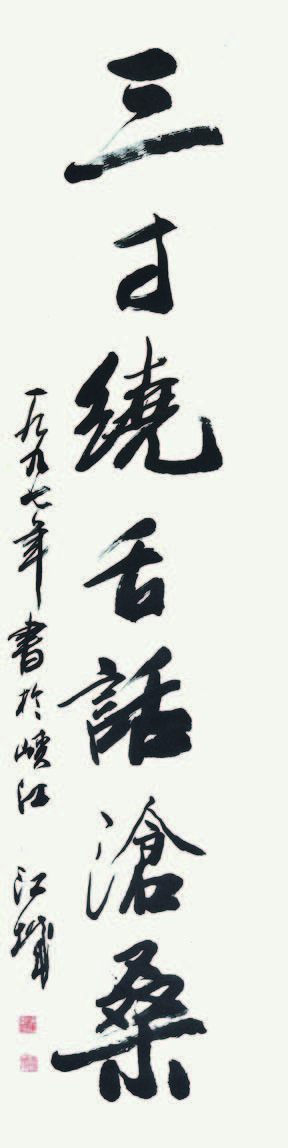 三寸繞舌話滄桑
一九九七年 書於峽江 江城